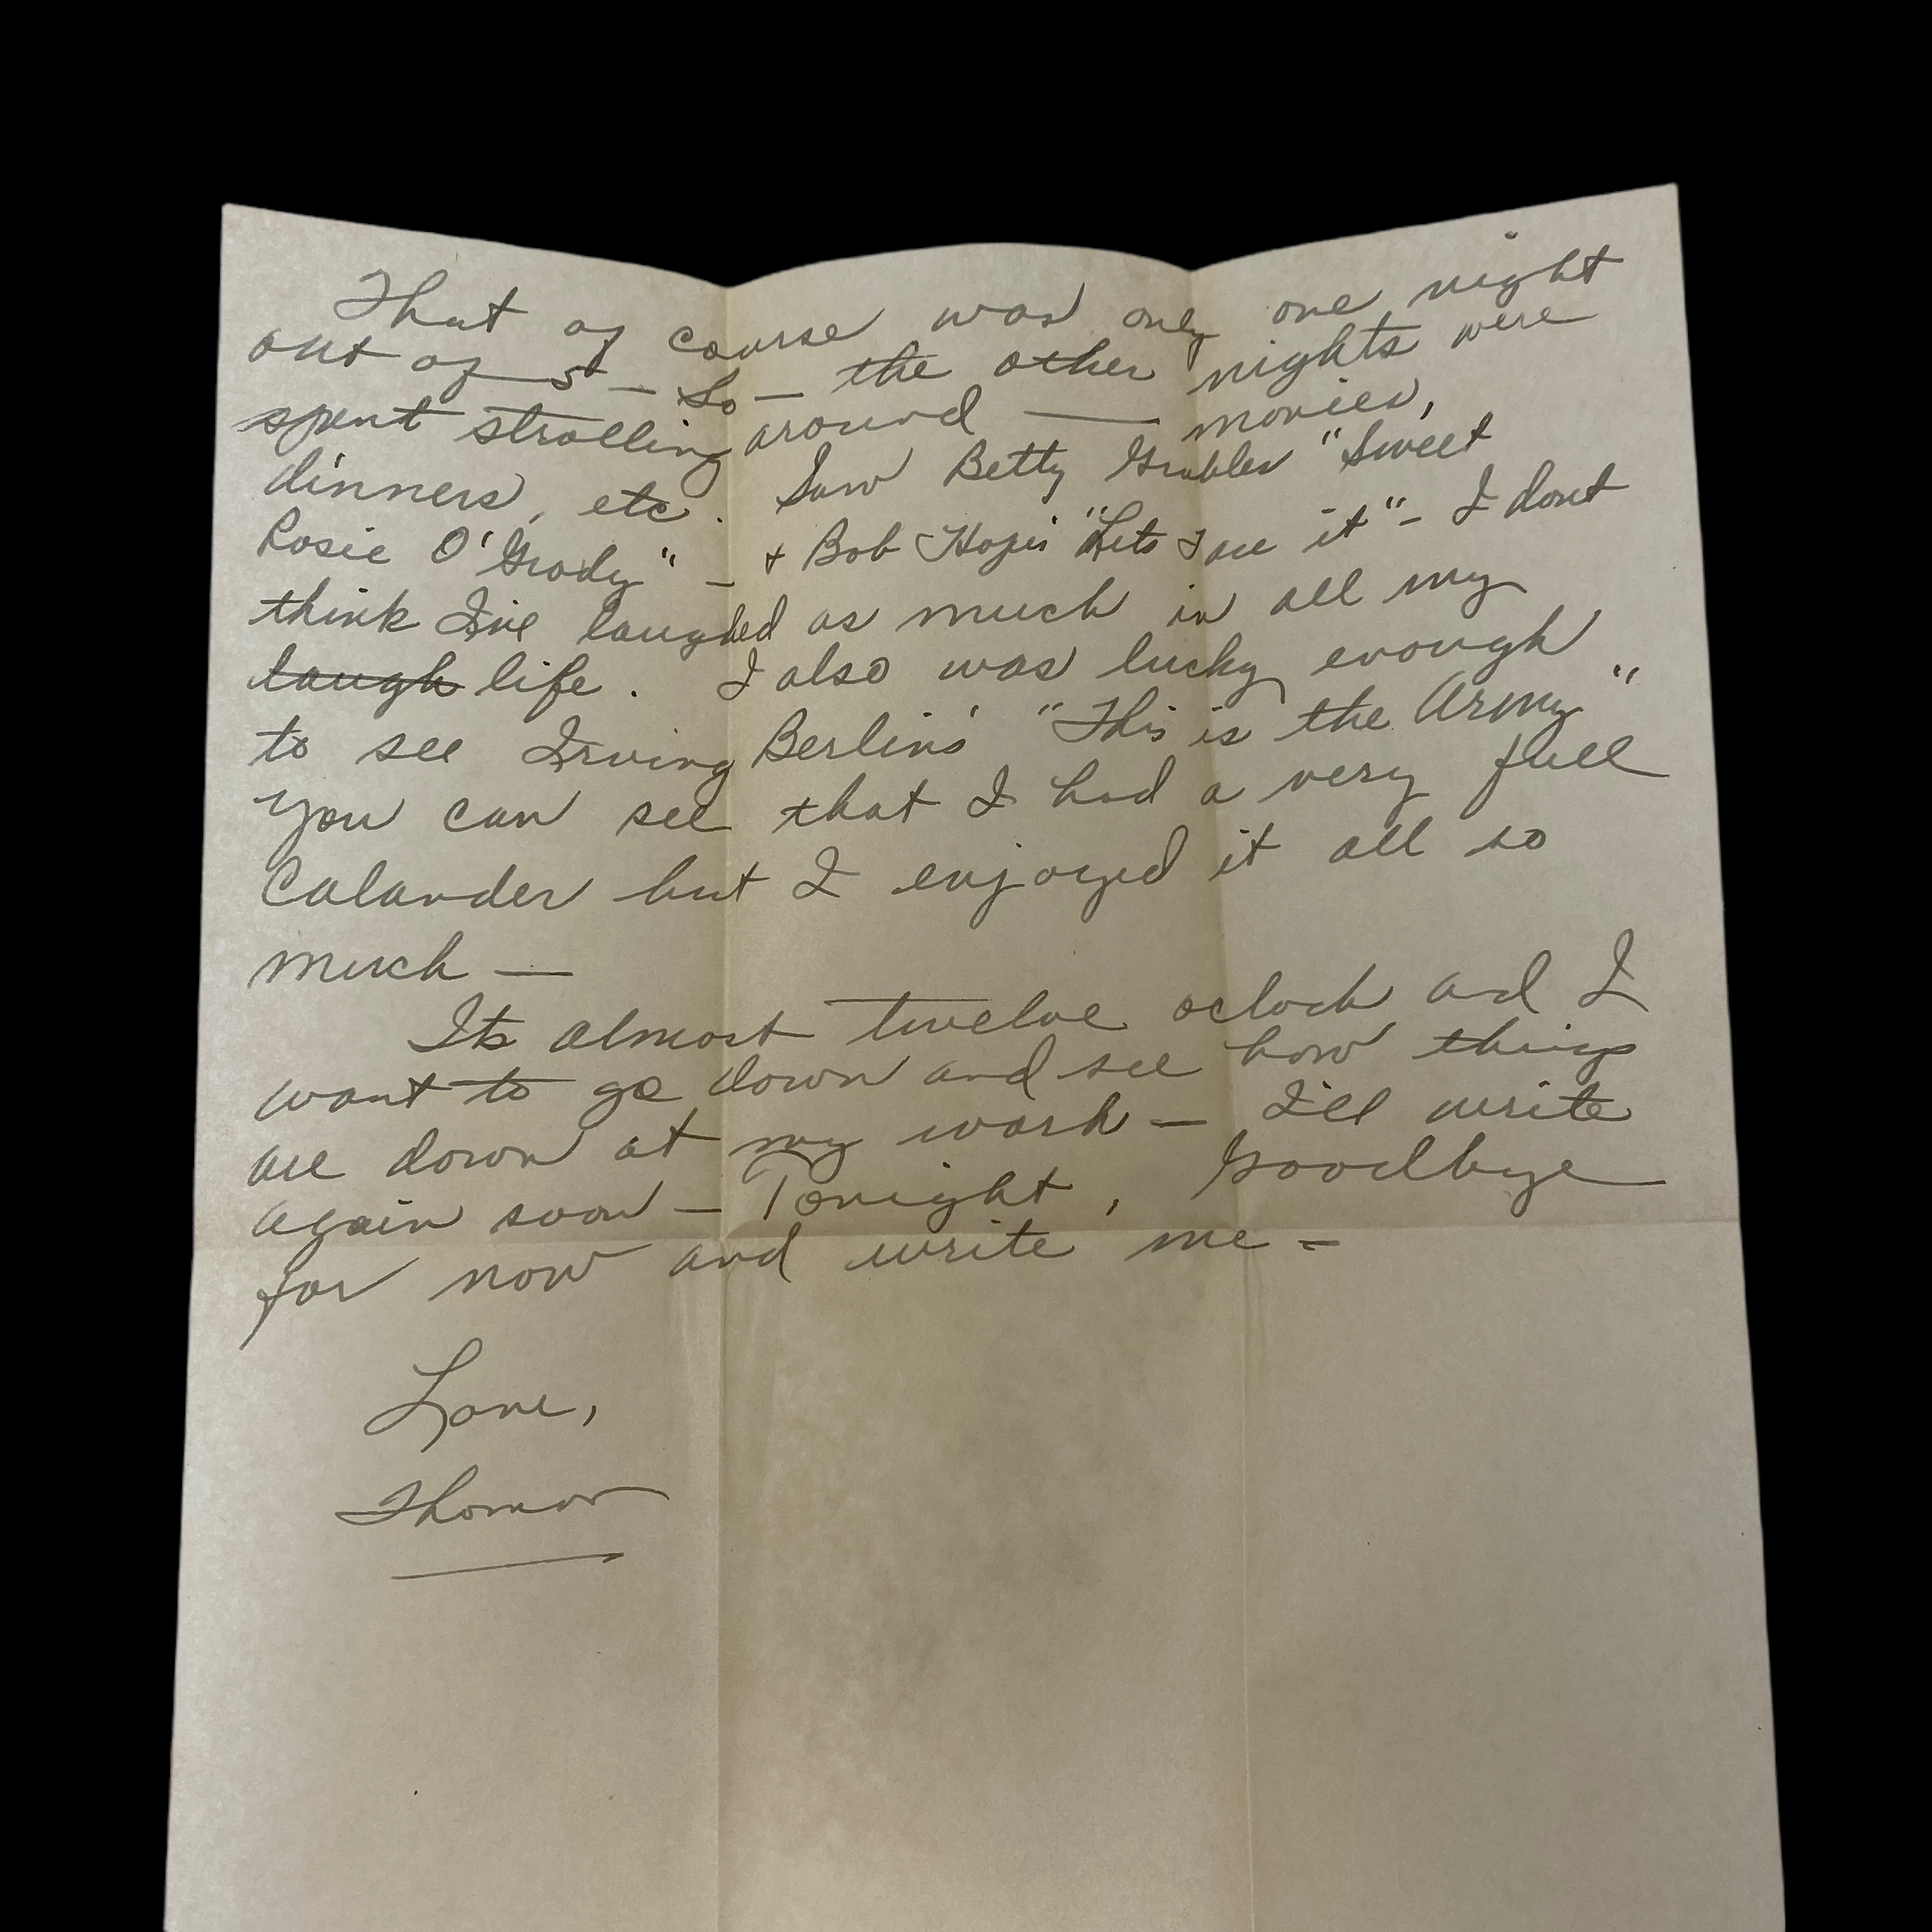 That of course was only one night
out of 5 — So — the other nights were
spent strolling around — movies,
dinners, etc. Saw Betty Grables "Sweet
Rosie O'Grady" — + Bob Hope's "Lets Face it" — I dont
think I've laughed as much in all my
laugh life. I also was lucky enough
to see Irving Berlins' "This is the Army"
You can see that I had a very full
Calander but I enjoyed it all so
much —
Its almost twelve oclock and I
want to go down and see how things
are down at my work — I'll write
again soon — Tonight, Goodbye
for now and write me =
Love,
Thomas